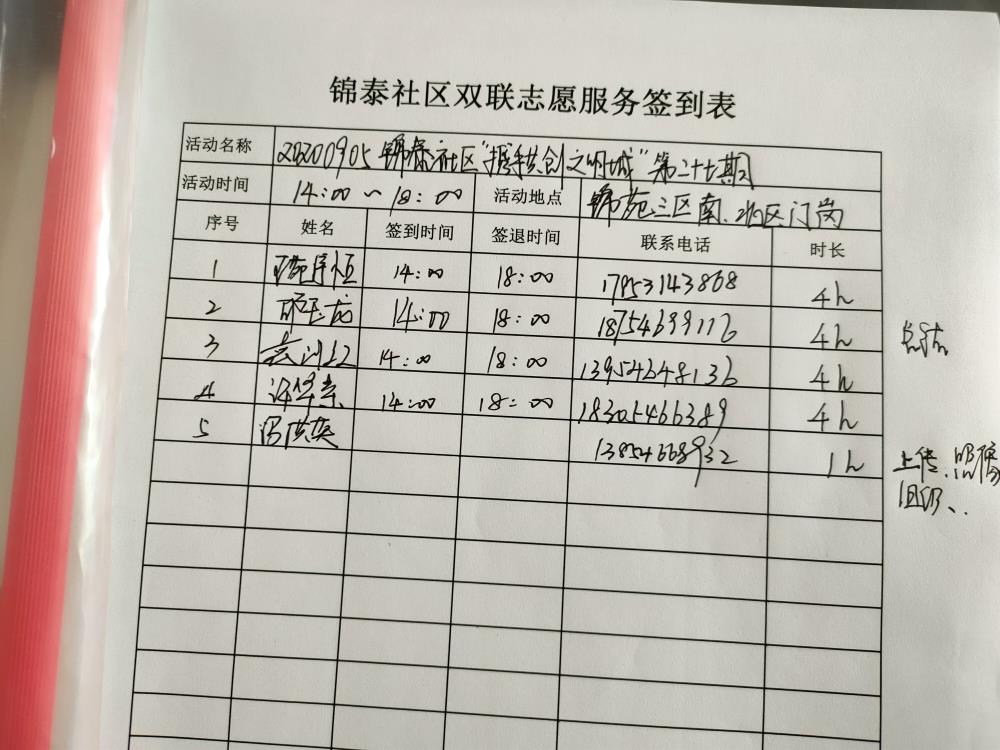 锦泰社区双联志愿服务签到表
活动名称 20200905 锦泰社区"携手共创文明城"第二十七期
活动时间 14:00 ~ 18:00 活动地点 锦苑三区南、北区门岗
序号 姓名 签到时间 签退时间 联系电话 时长
1 14:00 18:00 17853143868 4h
2 14:00 18:00 18754699116 4h
3 14:00 18:00 13954648136 4h
4 14:00 18:00 18305466389 4h
5 13854668932 1h
上传、照像
组织、